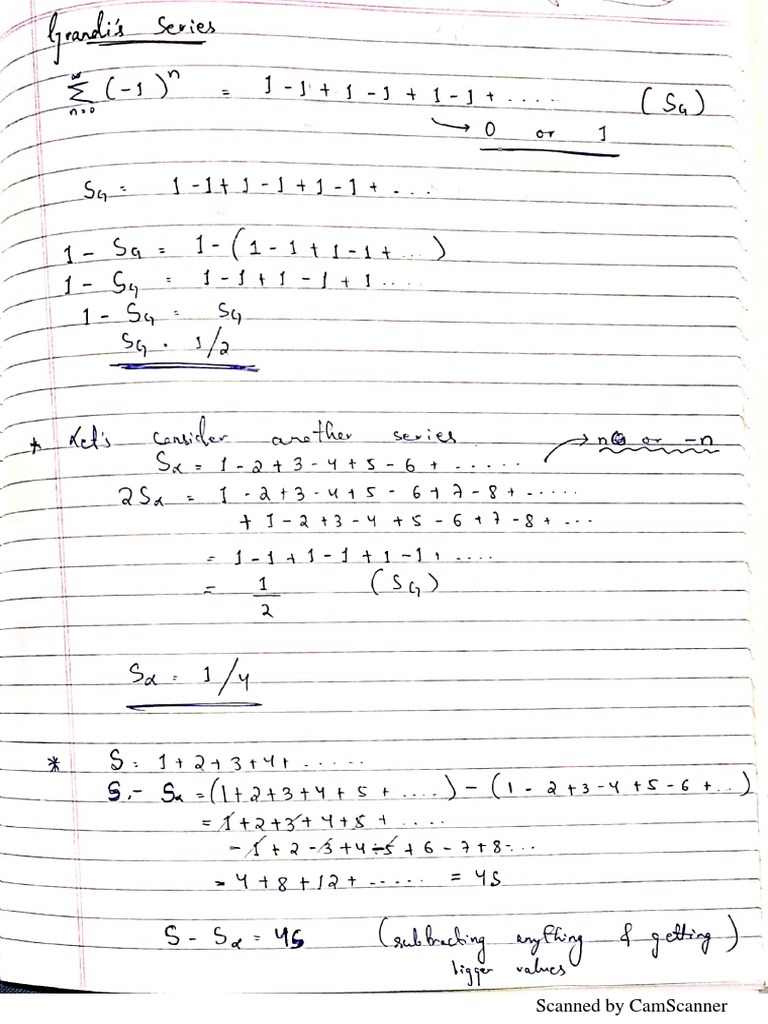 Grandi's Series
∞
Σ (-1)ⁿ = 1 - 1 + 1 - 1 + 1 - 1 + ..... (S_G)
n=0
→ 0 or 1
S_G = 1 - 1 + 1 - 1 + 1 - 1 + - ...
1 - S_G = 1 - (1 - 1 + 1 - 1 + ...)
1 - S_G = 1 - 1 + 1 - 1 + 1 ....
1 - S_G = S_G
S_G = 1/2
* Let's consider another series → n or -n
S_α = 1 - 2 + 3 - 4 + 5 - 6 + ......
2S_α = 1 - 2 + 3 - 4 + 5 - 6 + 7 - 8 + - .....
+ 1 - 2 + 3 - 4 + 5 - 6 + 7 - 8 + - ...
= 1 - 1 + 1 - 1 + 1 - 1 + ....
= 1/2 (S_G)
S_α = 1/4
* S = 1 + 2 + 3 + 4 + ......
S - S_α = (1 + 2 + 3 + 4 + 5 + ....) - (1 - 2 + 3 - 4 + 5 - 6 + ..)
= 1 + 2 + 3 + 4 + 5 + ....
- 1 + 2 - 3 + 4 - 5 + 6 - 7 + 8 - ...
= 4 + 8 + 12 + ...... = 4S
S - S_α = 4S (subtracting anything & getting)
bigger values
Scanned by CamScanner